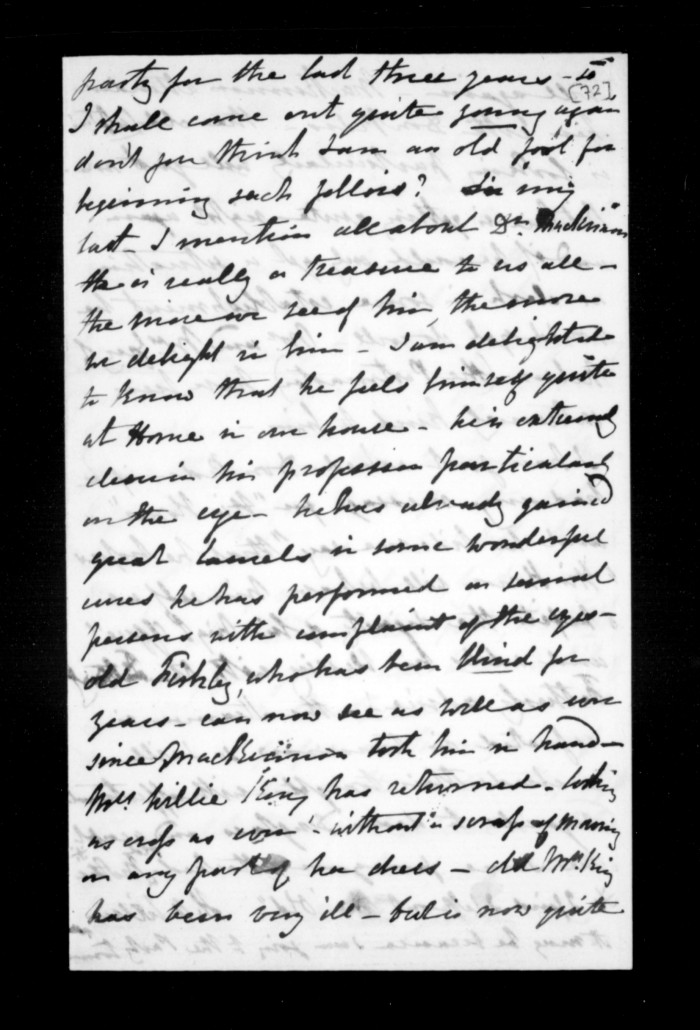 party for the last three years - so
[72]
I shall come out quite young again
don't you think I am an old fool for
beginning such follies? In my
last I mention all about Dr MacKinnon
he is really a treasure to us all -
the more we see of him, the more
we delight in him - I am delighted
to know that he feels himself quite
at Home in our house - he is extremely
clever in his profession particularly
on the eye - he has already gained
great laurels in some wonderful
cures he has performed on several
persons with complaint of the eyes -
old who has been blind for
years - can now see as well as ever
since MacKinnon took him in hand -
Mrs Willie King has returned - looking
as as ever - without a scrap of Mourning
on any part of her dress - old Mrs King
has been very ill - but is now quite